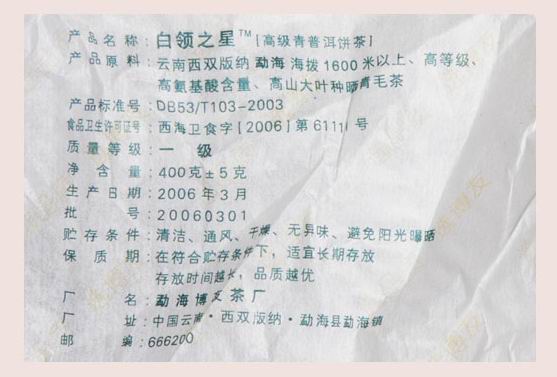 产品名称：白领之星™［高级青普洱饼茶］
产品原料：云南西双版纳勐海海拨1600米以上、高等级、
高氨基酸含量、高山大叶种晒青毛茶
产品标准号：DB53/T103-2003
食品卫生许可证号：西海卫食字［2006］第6111号
质量等级：一 级
净含量：400克±5克
生产日期：2006年3月
批号：20060301
贮存条件：清洁、通风、干燥、无异味、避免阳光曝晒
保质期：在符合贮存条件下，适宜长期存放
存放时间越长，品质越优
厂名：勐海博友茶厂
厂址：中国云南·西双版纳·勐海县勐海镇
邮编：666200